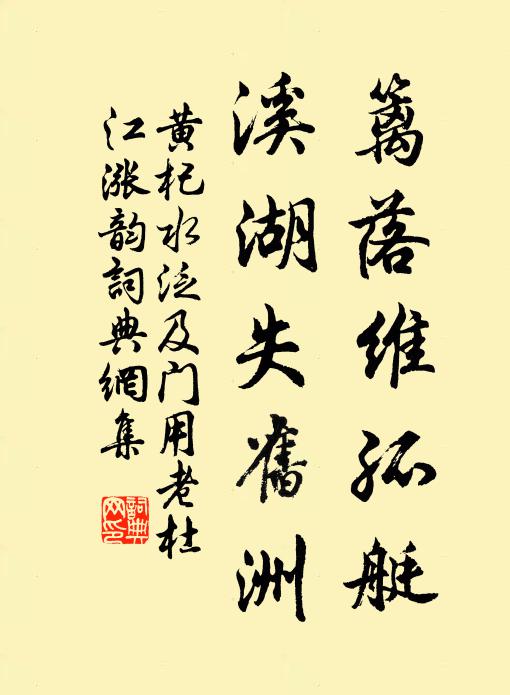 籬落維孤艇
溪湖失舊洲
黄杞水泛及门用老杜
江漲韵詞典網集
詞典网印